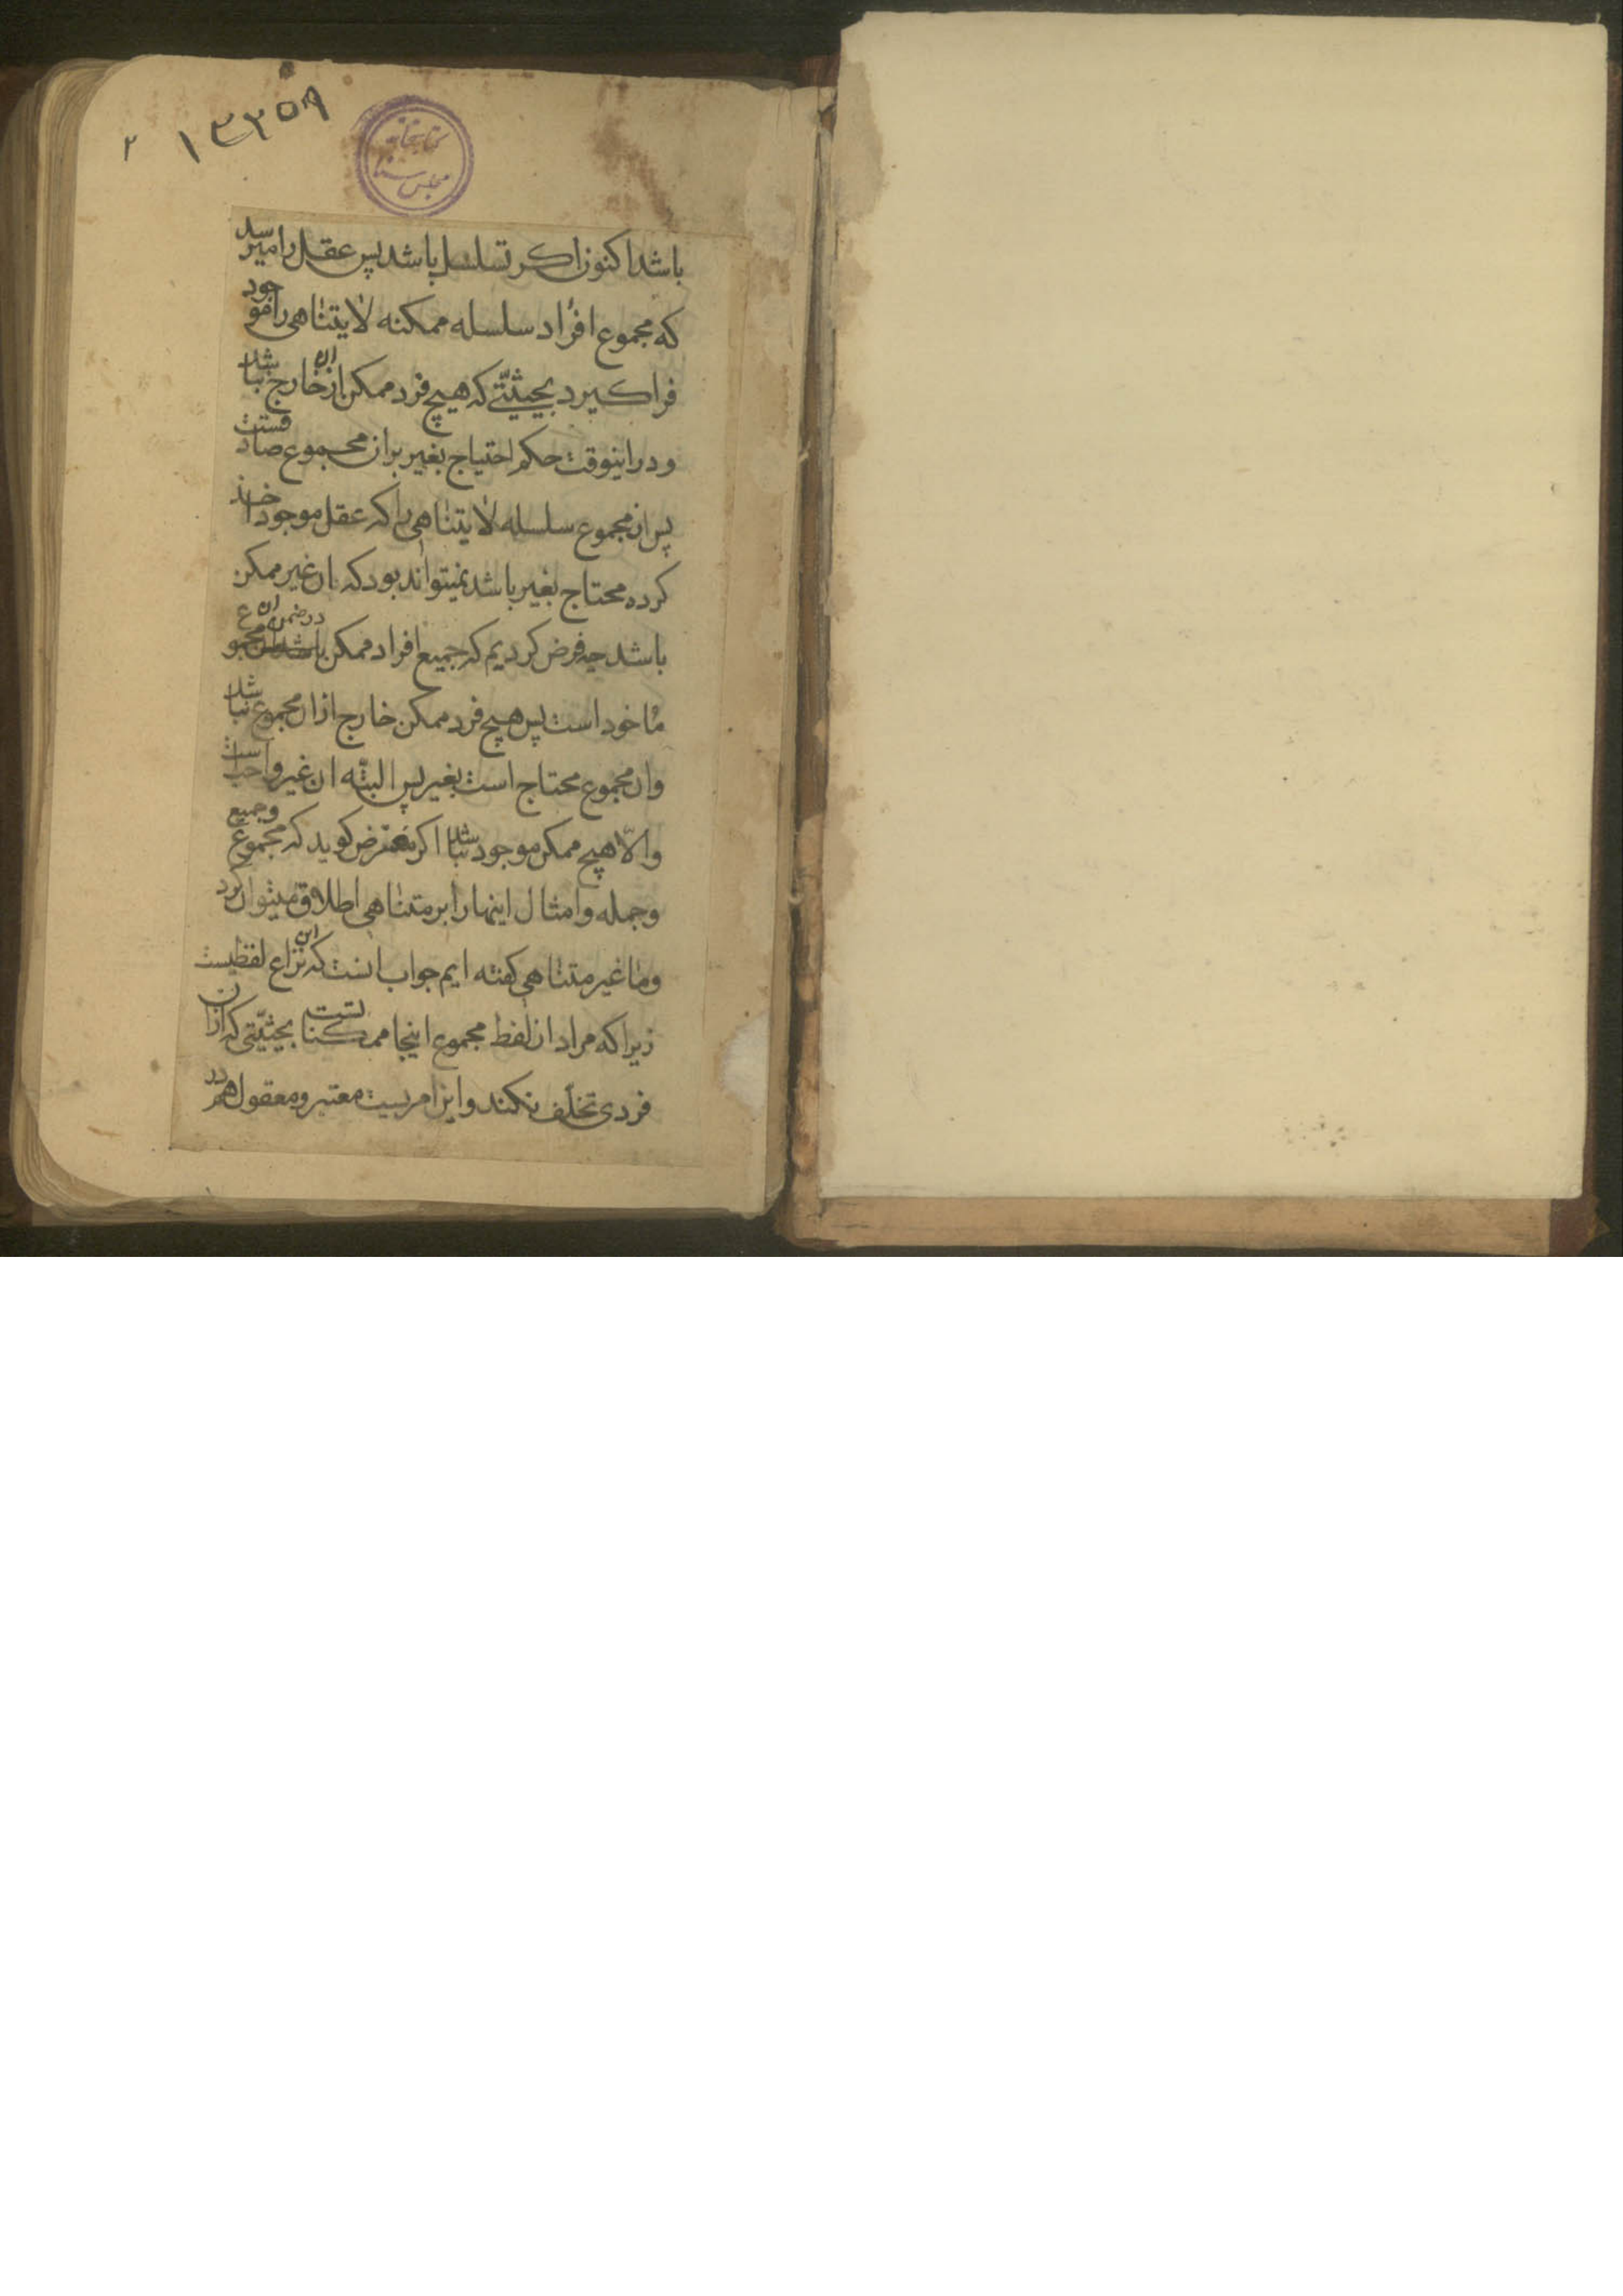 ۲ ۱۳۳۵۹
کتابخانه
مجلس سنا
باشد اکنون اکر تسلسل باشد پس عقل را میرسد
که مجموع افراد سلسله ممکنه لایتناهی را موجود
فرا کیرد بحیثیتی که هیچ فرد ممکن از ان خارج نباشد
و در اینوقت حکم احتیاج بغیر بر ان مجموع صادقست
پس ان مجموع سلسله لایتناهی را که عقل موجود اخذ
کرده محتاج بغیر باشد نمیتواند بود که ان غیر ممکن
باشد چه فرض کردیم که جمیع افراد ممکن در ضمن ان مجموع
ماخود است پس هیچ فرد ممکن خارج از ان مجموع نباشد
وان مجموع محتاج است بغیر پس البته ان غیر واجب است
والّا هیچ ممکن موجود نباشد اکر معترض کوید که مجموع وجمیع
وجمله وامثال اینها را بر متناهی اطلاق میتوان کرد
وما غیر متناهی کفته ایم جواب انست که این نزاع لفظیست
زیرا که مراد از لفظ مجموع اینجا ممکناتست بحیثیّتی که از ان
فردی تخلّف نکند واین امریست معتبر ومعقول هر